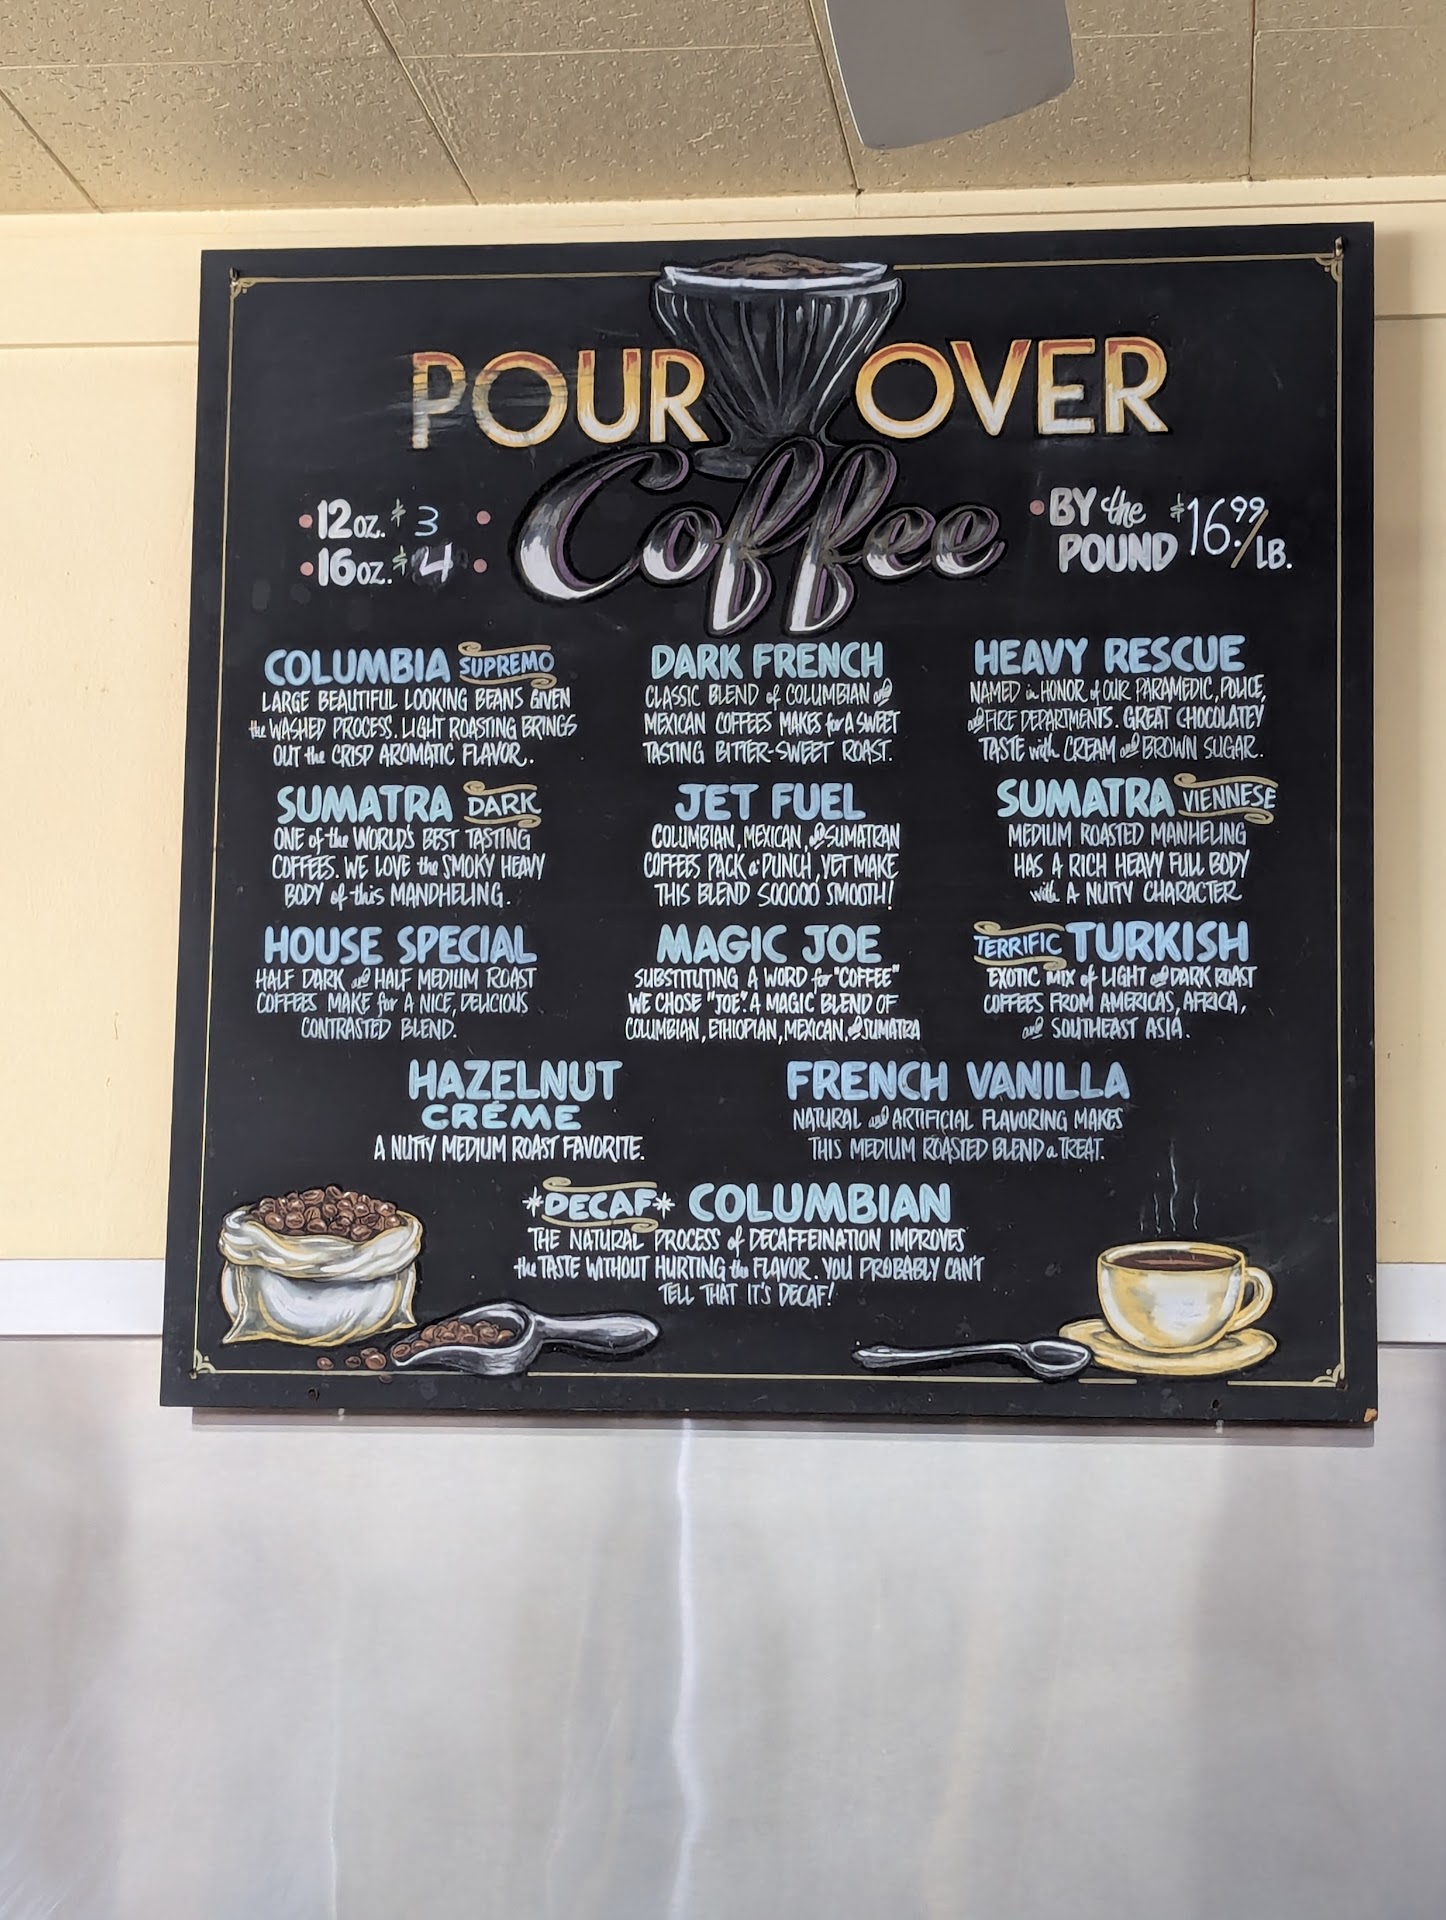 POUR OVER
Coffee
12 OZ. $3
16 OZ. $4
BY the
POUND $16.99/LB.
COLUMBIA SUPREMO
LARGE BEAUTIFUL LOOKING BEANS GIVEN
the WASHED PROCESS. LIGHT ROASTING BRINGS
OUT the CRISP AROMATIC FLAVOR.
DARK FRENCH
CLASSIC BLEND of COLUMBIAN and
MEXICAN COFFEES MAKES for A SWEET
TASTING BITTER-SWEET ROAST.
HEAVY RESCUE
NAMED in HONOR of OUR PARAMEDIC, POLICE,
and FIRE DEPARTMENTS. GREAT CHOCOLATEY
TASTE with CREAM and BROWN SUGAR.
SUMATRA DARK
ONE of the WORLD'S BEST TASTING
COFFEES. WE LOVE the SMOKY HEAVY
BODY of this MANDHELING.
JET FUEL
COLUMBIAN, MEXICAN, and SUMATRAN
COFFEES PACK a PUNCH, YET MAKE
THIS BLEND SOOOOO SMOOTH!
SUMATRA VIENNESE
MEDIUM ROASTED MANHELING
HAS A RICH HEAVY FULL BODY
with A NUTTY CHARACTER
HOUSE SPECIAL
HALF DARK and HALF MEDIUM ROAST
COFFEES MAKE for A NICE, DELICIOUS
CONTRASTED BLEND.
MAGIC JOE
SUBSTITUTING A WORD for "COFFEE"
WE CHOSE "JOE". A MAGIC BLEND OF
COLUMBIAN, ETHIOPIAN, MEXICAN, and SUMATRA
TERRIFIC TURKISH
EXOTIC MIX of LIGHT and DARK ROAST
COFFEES FROM AMERICAS, AFRICA,
and SOUTHEAST ASIA.
HAZELNUT
CRÉME
A NUTTY MEDIUM ROAST FAVORITE.
FRENCH VANILLA
NATURAL and ARTIFICIAL FLAVORING MAKES
THIS MEDIUM ROASTED BLEND a TREAT.
*DECAF* COLUMBIAN
THE NATURAL PROCESS of DECAFFEINATION IMPROVES
the TASTE WITHOUT HURTING the FLAVOR. YOU PROBABLY CAN'T
TELL THAT IT'S DECAF!